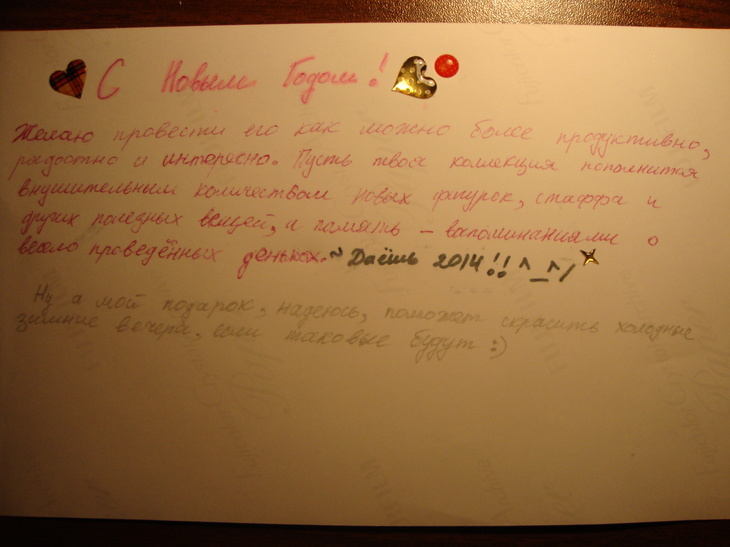 С Новым Годом!
Желаю провести его как можно более продуктивно,
радостно и интересно. Пусть твоя коллекция пополнится
внушительным количеством новых фигурок, стаффа и
других полезных вещей, а память – воспоминаниями о
весело проведённых деньках.~ Даёшь 2014!! ^_^/
Ну а мой подарок, надеюсь, поможет скрасить холодные
зимние вечера, если таковые будут :)